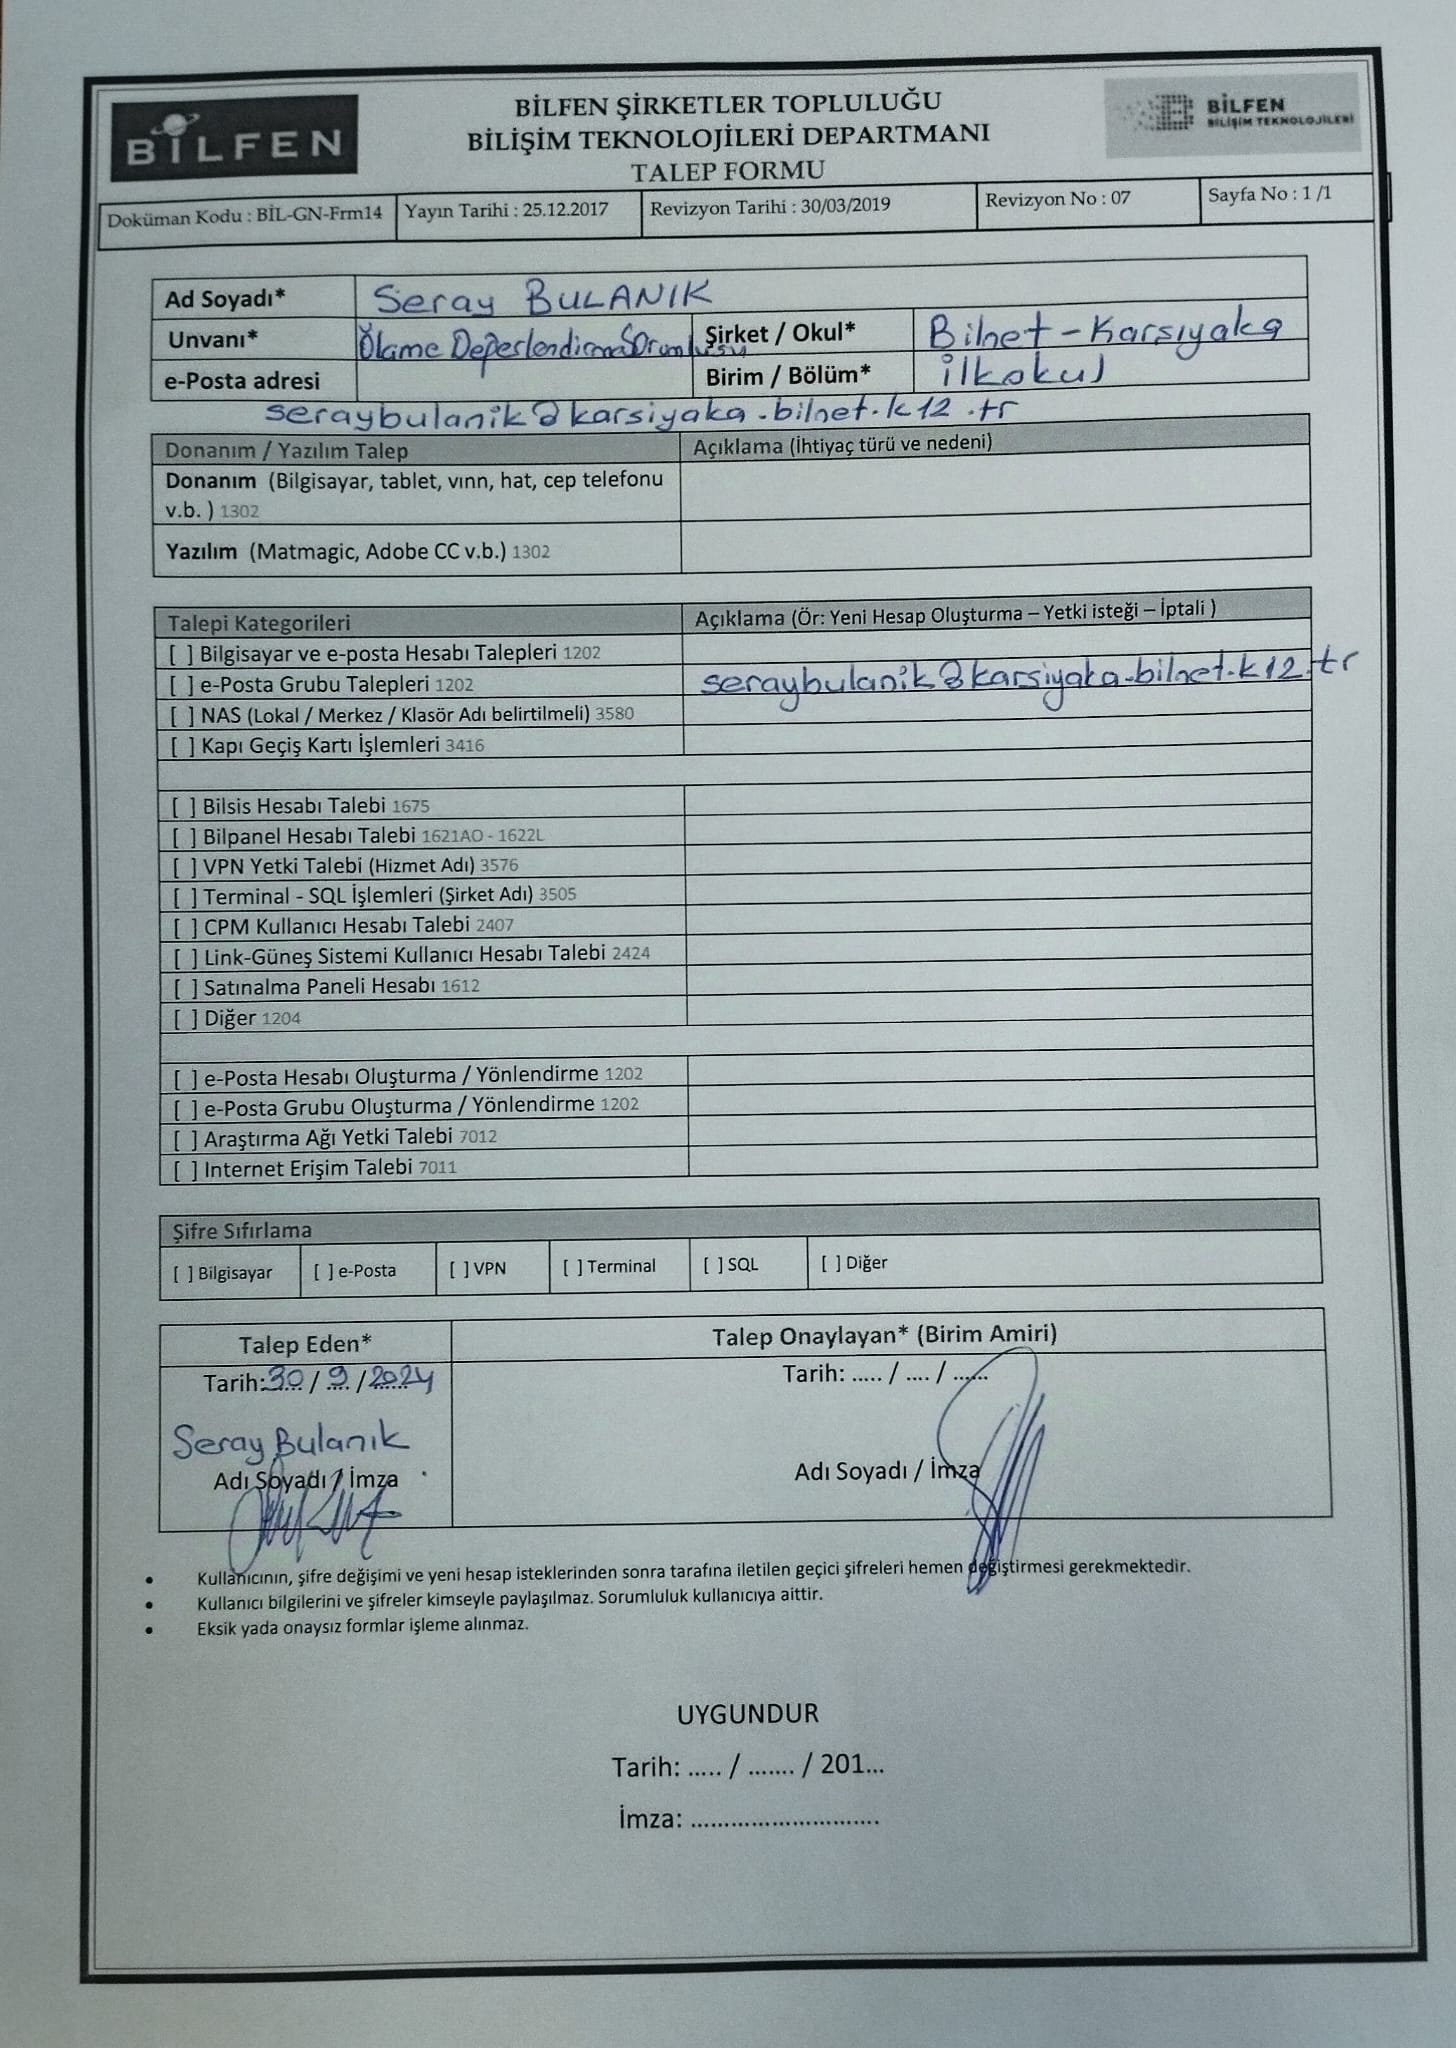 BİLFEN
BİLFEN ŞİRKETLER TOPLULUĞU
BİLİŞİM TEKNOLOJİLERİ DEPARTMANI
TALEP FORMU
BİLFEN
BİLİŞİM TEKNOLOJİLERİ
Doküman Kodu : BİL-GN-Frm14 Yayın Tarihi : 25.12.2017 Revizyon Tarihi : 30/03/2019 Revizyon No : 07 Sayfa No : 1 /1
Ad Soyadı* Seray BULANIK
Unvanı* Ölçme Değerlendirme Sorumlusu Şirket / Okul* Bilnet-Karsıyaka
e-Posta adresi Birim / Bölüm* ilkokul
seraybulanik@karsiyaka.bilnet.k12.tr
Donanım / Yazılım Talep Açıklama (İhtiyaç türü ve nedeni)
Donanım (Bilgisayar, tablet, vınn, hat, cep telefonu
v.b. ) 1302
Yazılım (Matmagic, Adobe CC v.b.) 1302
Talepi Kategorileri Açıklama (Ör: Yeni Hesap Oluşturma – Yetki isteği – İptali )
[ ] Bilgisayar ve e-posta Hesabı Talepleri 1202
[ ] e-Posta Grubu Talepleri 1202 seraybulanik@karsiyaka.bilnet.k12.tr
[ ] NAS (Lokal / Merkez / Klasör Adı belirtilmeli) 3580
[ ] Kapı Geçiş Kartı İşlemleri 3416
[ ] Bilsis Hesabı Talebi 1675
[ ] Bilpanel Hesabı Talebi 1621AO - 1622L
[ ] VPN Yetki Talebi (Hizmet Adı) 3576
[ ] Terminal - SQL İşlemleri (Şirket Adı) 3505
[ ] CPM Kullanıcı Hesabı Talebi 2407
[ ] Link-Güneş Sistemi Kullanıcı Hesabı Talebi 2424
[ ] Satınalma Paneli Hesabı 1612
[ ] Diğer 1204
[ ] e-Posta Hesabı Oluşturma / Yönlendirme 1202
[ ] e-Posta Grubu Oluşturma / Yönlendirme 1202
[ ] Araştırma Ağı Yetki Talebi 7012
[ ] Internet Erişim Talebi 7011
Şifre Sıfırlama
[ ] Bilgisayar [ ] e-Posta [ ] VPN [ ] Terminal [ ] SQL [ ] Diğer
Talep Eden* Talep Onaylayan* (Birim Amiri)
Tarih: 30 / 9 / 2024 Tarih: ..... / .... / ......
Seray Bulanık
Adı Soyadı / İmza Adı Soyadı / İmza
• Kullanıcının, şifre değişimi ve yeni hesap isteklerinden sonra tarafına iletilen geçici şifreleri hemen değiştirmesi gerekmektedir.
• Kullanıcı bilgilerini ve şifreler kimseyle paylaşılmaz. Sorumluluk kullanıcıya aittir.
• Eksik yada onaysız formlar işleme alınmaz.
UYGUNDUR
Tarih: ..... / ....... / 201...
İmza: ............................